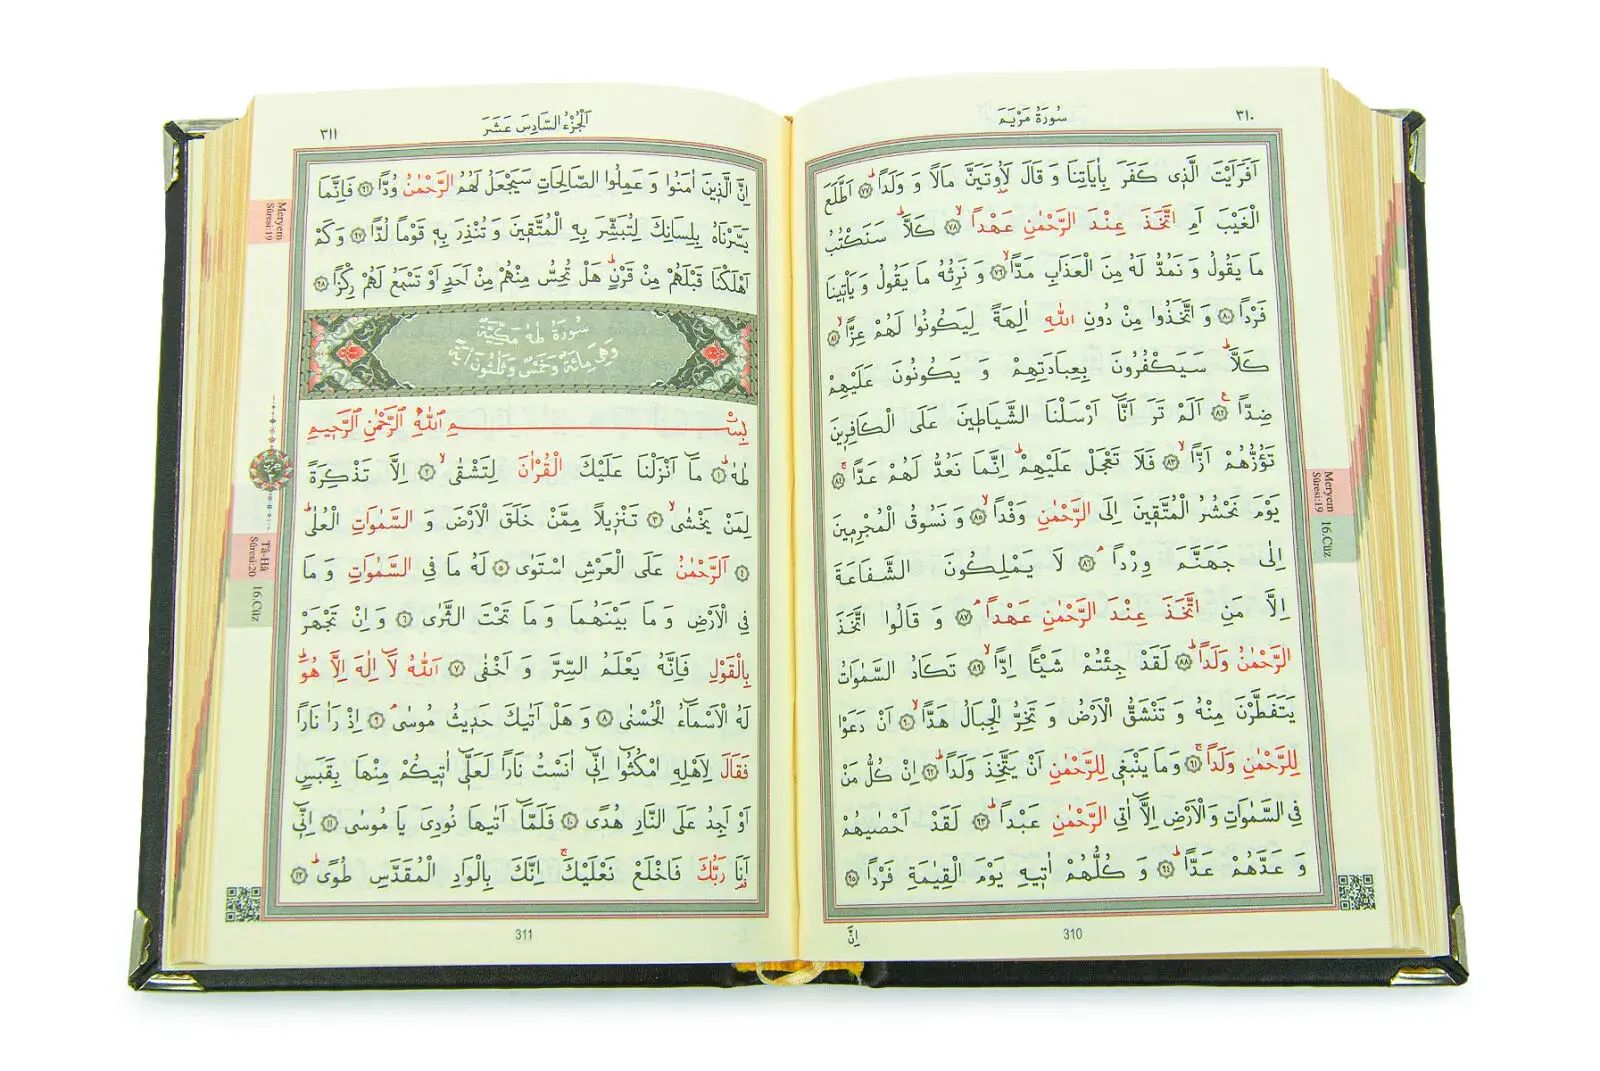 ٣١٠
سُورَةُ مَرْيَمَ
اَفَرَاَيْتَ الَّذ۪ي كَفَرَ بِاٰيَاتِنَا وَ قَالَ لَاُو۫تَيَنَّ مَالًا وَ وَلَدًاۜ ﴿٧٧﴾ اَطَّلَعَ
الْغَيْبَ اَمِ اتَّخَذَ عِنْدَ الرَّحْمٰنِ عَهْدًاۙ ﴿٧٨﴾ كَلَّاۜ سَنَكْتُبُ
مَا يَقُولُ وَ نَمُدُّ لَهُ مِنَ الْعَذَابِ مَدًّاۙ ﴿٧٩﴾ وَ نَرِثُهُ مَا يَقُولُ وَ يَأْت۪ينَا
فَرْدًا ﴿٨٠﴾ وَ اتَّخَذُوا مِنْ دُونِ اللّٰهِ اٰلِهَةً لِيَكُونُوا لَهُمْ عِزًّاۙ ﴿٨١﴾
كَلَّاۜ سَيَكْفُرُونَ بِعِبَادَتِهِمْ وَ يَكُونُونَ عَلَيْهِمْ
ضِدًّا۟ ﴿٨٢﴾ اَلَمْ تَرَ اَنَّٓا اَرْسَلْنَا الشَّيَاط۪ينَ عَلَى الْكَافِر۪ينَ
تَؤُزُّهُمْ اَزًّاۙ ﴿٨٣﴾ فَلَا تَعْجَلْ عَلَيْهِمْۜ اِنَّمَا نَعُدُّ لَهُمْ عَدًّاۚ ﴿٨٤﴾
يَوْمَ نَحْشُرُ الْمُتَّق۪ينَ اِلَى الرَّحْمٰنِ وَفْدًاۙ ﴿٨٥﴾ وَ نَسُوقُ الْمُجْرِم۪ينَ
اِلٰى جَهَنَّمَ وِرْدًاۢ ﴿٨٦﴾ لَا يَمْلِكُونَ الشَّفَاعَةَ
اِلَّا مَنِ اتَّخَذَ عِنْدَ الرَّحْمٰنِ عَهْدًاۢ ﴿٨٧﴾ وَ قَالُوا اتَّخَذَ
الرَّحْمٰنُ وَلَدًاۜ ﴿٨٨﴾ لَقَدْ جِئْتُمْ شَيْـًٔا اِدًّاۙ ﴿٨٩﴾ تَكَادُ السَّمٰوَاتُ
يَتَفَطَّرْنَ مِنْهُ وَ تَنْشَقُّ الْاَرْضُ وَ تَخِرُّ الْجِبَالُ هَدًّاۙ ﴿٩٠﴾ اَنْ دَعَوْا
لِلرَّحْمٰنِ وَلَدًاۚ ﴿٩١﴾ وَ مَا يَنْبَغ۪ي لِلرَّحْمٰنِ اَنْ يَتَّخِذَ وَلَدًاۜ ﴿٩٢﴾ اِنْ كُلُّ مَنْ
فِي السَّمٰوَاتِ وَ الْاَرْضِ اِلَّٓا اٰتِي الرَّحْمٰنِ عَبْدًاۜ ﴿٩٣﴾ لَقَدْ اَحْصٰيهُمْ
وَ عَدَّهُمْ عَدًّاۜ ﴿٩٤﴾ وَ كُلُّهُمْ اٰت۪يهِ يَوْمَ الْقِيٰمَةِ فَرْدًا ﴿٩٥﴾
اِنَّ
310
Meryem
Sûresi:19
16.Cüz
اَلْجُزْءُ السَّادِسَ عَشَرَ
٣١١
اِنَّ الَّذ۪ينَ اٰمَنُوا وَ عَمِلُوا الصَّالِحَاتِ سَيَجْعَلُ لَهُمُ الرَّحْمٰنُ وُدًّا ﴿٩٦﴾ فَاِنَّمَا
يَسَّرْنَاهُ بِلِسَانِكَ لِتُبَشِّرَ بِهِ الْمُتَّق۪ينَ وَ تُنْذِرَ بِه۪ قَوْمًا لُدًّا ﴿٩٧﴾ وَ كَمْ
اَهْلَكْنَا قَبْلَهُمْ مِنْ قَرْنٍۜ هَلْ تُحِسُّ مِنْهُمْ مِنْ اَحَدٍ اَوْ تَسْمَعُ لَهُمْ رِكْزًا ﴿٩٨﴾
سُورَةُ طٰهٰ مَكِّيَّةٌ
وَهِيَ مِائَةٌ وَخَمْسٌ وَثَلٰثُونَ اٰيَةً
بِسْمِ اللّٰهِ الرَّحْمٰنِ الرَّح۪يمِ
طٰهٰۜ ﴿١﴾ مَٓا اَنْزَلْنَا عَلَيْكَ الْقُرْاٰنَ لِتَشْقٰىۙ ﴿٢﴾ اِلَّا تَذْكِرَةً
لِمَنْ يَخْشٰىۙ ﴿٣﴾ تَنْز۪يلًا مِمَّنْ خَلَقَ الْاَرْضَ وَ السَّمٰوَاتِ الْعُلٰىۜ
﴿٤﴾ اَلرَّحْمٰنُ عَلَى الْعَرْشِ اسْتَوٰى ﴿٥﴾ لَهُ مَا فِي السَّمٰوَاتِ وَ مَا
فِي الْاَرْضِ وَ مَا بَيْنَهُمَا وَ مَا تَحْتَ الثَّرٰى ﴿٦﴾ وَ اِنْ تَجْهَرْ
بِالْقَوْلِ فَاِنَّهُ يَعْلَمُ السِّرَّ وَ اَخْفٰى ﴿٧﴾ اَللّٰهُ لَٓا اِلٰهَ اِلَّا هُوَۜ
لَهُ الْاَسْمَٓاءُ الْحُسْنٰى ﴿٨﴾ وَ هَلْ اَتٰيكَ حَد۪يثُ مُوسٰىۢ ﴿٩﴾ اِذْ رَاٰ نَارًا
فَقَالَ لِاَهْلِهِ امْكُثُٓوا اِنّ۪ٓي اٰنَسْتُ نَارًا لَعَلّ۪ٓي اٰت۪يكُمْ مِنْهَا بِقَبَسٍ
اَوْ اَجِدُ عَلَى النَّارِ هُدًى ﴿١٠﴾ فَلَمَّٓا اَتٰيهَا نُودِيَ يَا مُوسٰى ﴿١١﴾ اِنّ۪ٓي
اَنَا۬ رَبُّكَ فَاخْلَعْ نَعْلَيْكَۚ اِنَّكَ بِالْوَادِ الْمُقَدَّسِ طُوًىۜ ﴿١٢﴾
311
Meryem
Sûresi:19
Tâ-Hâ
Sûresi:20
16.Cüz